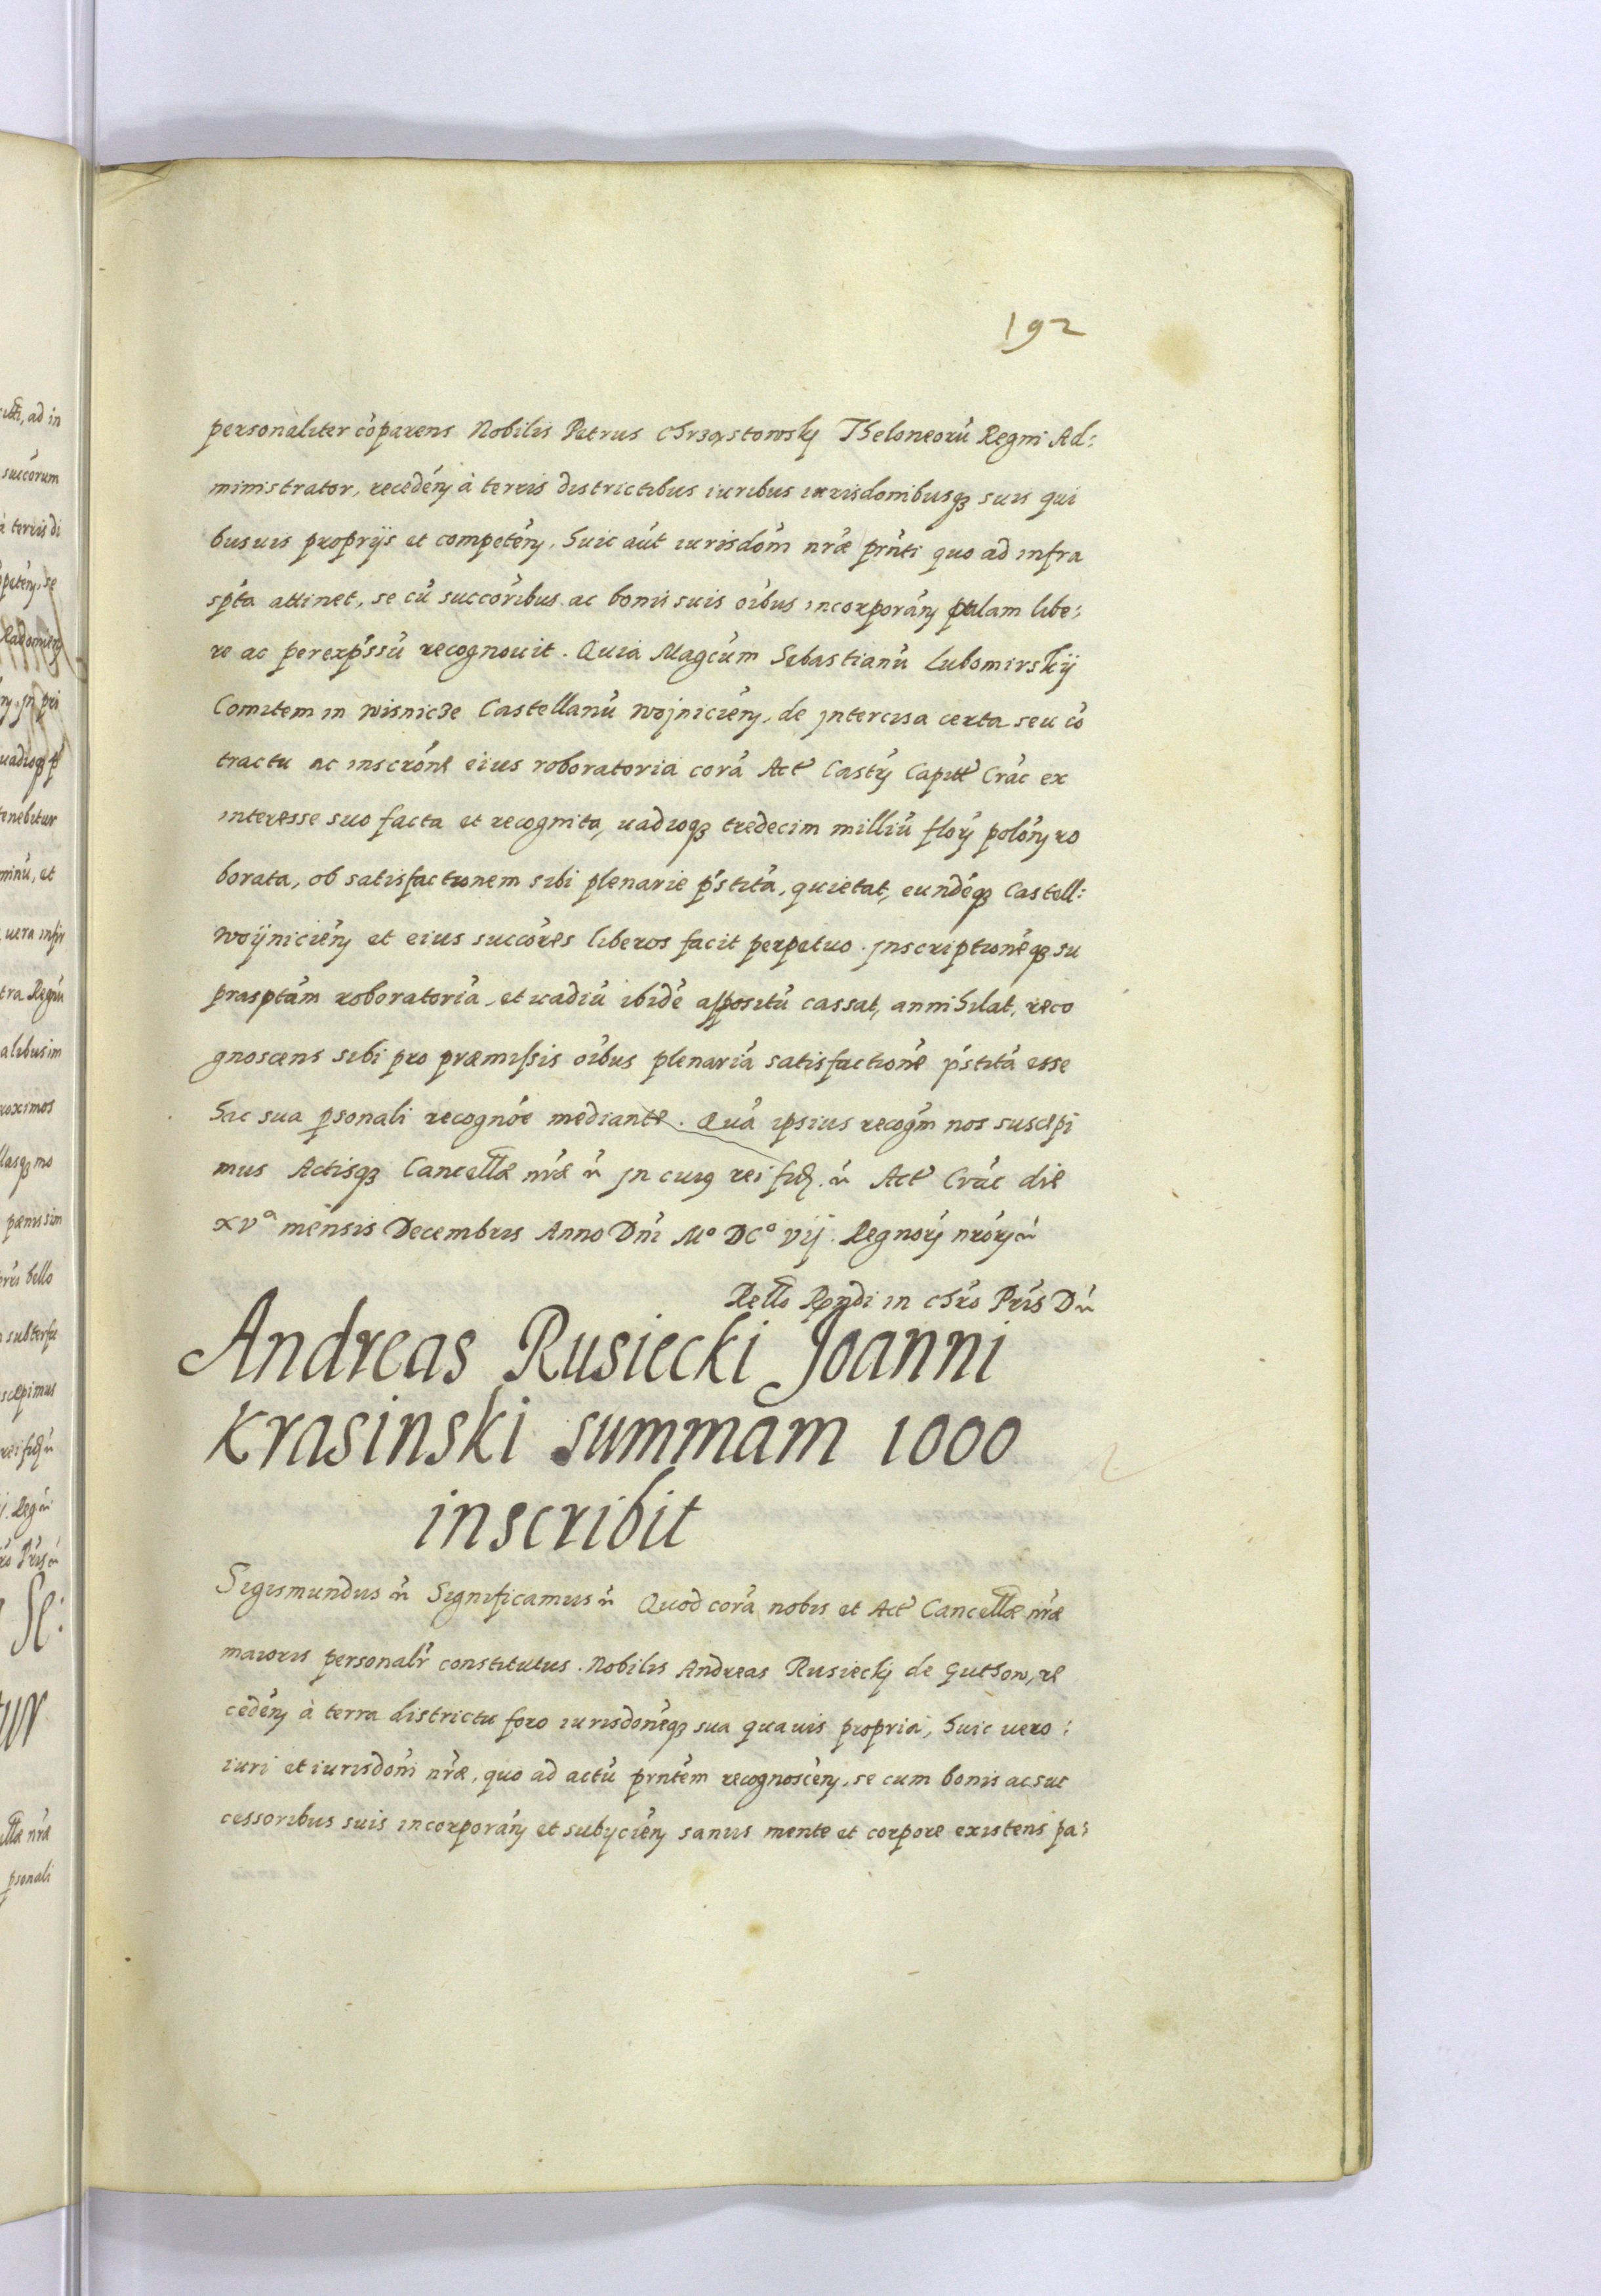 192
personaliter cõparens Nobilis Petrus Chrząstowsky Theloneorũ Regni Ad:
ministrator, recedeñ à terris districtibus iuribus iurisdonibusqꝫ suis qui
busuis proprijs et competeñ, huic aũt iurisdoñi nr̃æ pñti quo ad infra
sp̃ta attinet, se cũ succorĩbus ac bonis suis oĩbus incorporañ palam libe:
re ac perexp̃ssũ recognouit. Quia Magcũm Sebastianũ Lubomirskij
Comitem in Wisnicze Castellanũ Wojnicieñ, de jntercisa certa seu cõ
tractu ac inscrõne eius roboratoria corã Act̃ Castr̃ Capitt̃ Crac̃ ex
interesse suo facta et recognita, uadioqꝫ tredecim milliũ flor̃ poloñ ro
borata, ob satisfactionem sibi plenarie p̃stitã, quietat, eundẽqꝫ Castell:
Woijnicieñ et eius succõres liberos facit perpetuo. jnscriptionẽqꝫ su
prasptãm roboratoriã, et uadiũ ibidẽ appositũ cassat, annihilat, reco
gnoscens sibi pro præmissis oĩbus plenariã satisfactionẽ p̃stitã esse
hac sua psonali recognõe mediante. Quã ipsius recogñm nos suscepi
mus Actisqꝫ Cancellæ nr̃æ ẽ jn cuiꝰ rei fid. ẽ Act̃ Crac̃ die
XVª mensis Decembris Anno Dñi Mº DCº Vij. Regnor̃ nror̃ ẽ
Rello Rṇdi in Chrõ Pris̃ D ẽ
Andreas Rusiecki Joanni
Krasinski summam 1000
inscribit
Sigismundus ẽ Significamus ẽ Quod corã nobis et Act̃ Cancellæ nr̃æ
maioris personalr̃ constitutus. Nobilis Andreas Rusiecky de Guthow, re
cedeñ à terra districtu foro iurisdonẽqꝫ sua quauis propria, huic uero:
iuri et iurisdoñi nr̃æ, quo ad actũ prñtem recognosceñ, se cum bonis ac suc
cessoribus suis incorporañ et subijcieñ sanus mente et corpore existens pa: